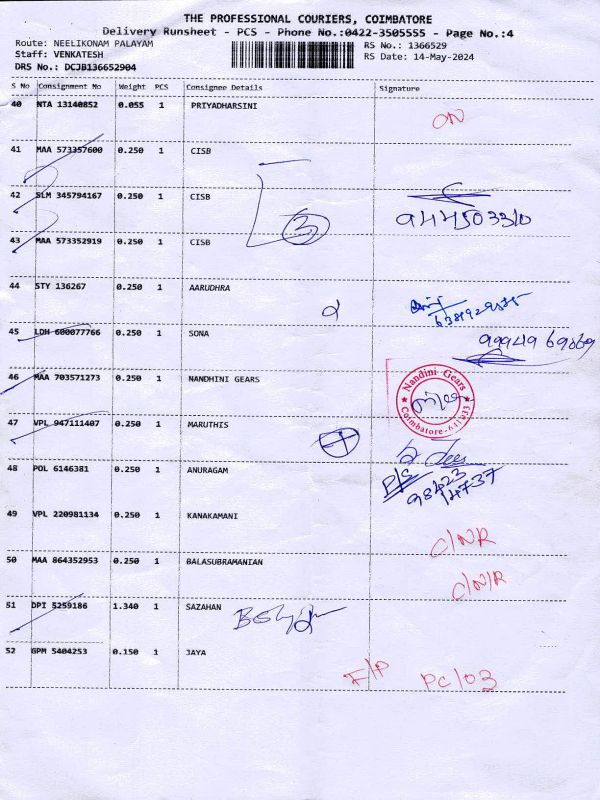 THE PROFESSIONAL COURIERS, COIMBATORE
Delivery Runsheet - PCS - Phone No.:0422-3505555 - Page No.:4
Route: NEELIKONAM PALAYAM
RS No.: 1366529
Staff: VENKATESH
RS Date: 14-May-2024
DRS No.: DCJB136652904
S No Consignment No Weight PCS Consignee Details Signature
40 NTA 13140852 0.055 1 PRIYADHARSINI
ON
41 MAA 573357600 0.250 1 CISB
42 SLM 345794167 0.250 1 CISB
3
9445033310
43 MAA 573352919 0.250 1 CISB
44 STY 136267 0.250 1 AARUDHRA
45 LDH 600077766 0.250 1 SONA
99949 69869
46 MAA 703571273 0.250 1 NANDHINI GEARS
Nandini Gears
Coimbatore-641 033
47 VPL 947111407 0.250 1 MARUTHIS
48 POL 6146381 0.250 1 ANURAGAM
98423
14737
49 VPL 220981134 0.250 1 KANAKAMANI
C/N/R
50 MAA 864352953 0.250 1 BALASUBRAMANIAN
C/N/R
51 DPI 5259186 1.340 1 SAZAHAN
52 GPM 5404253 0.150 1 JAYA
F/P PC/03